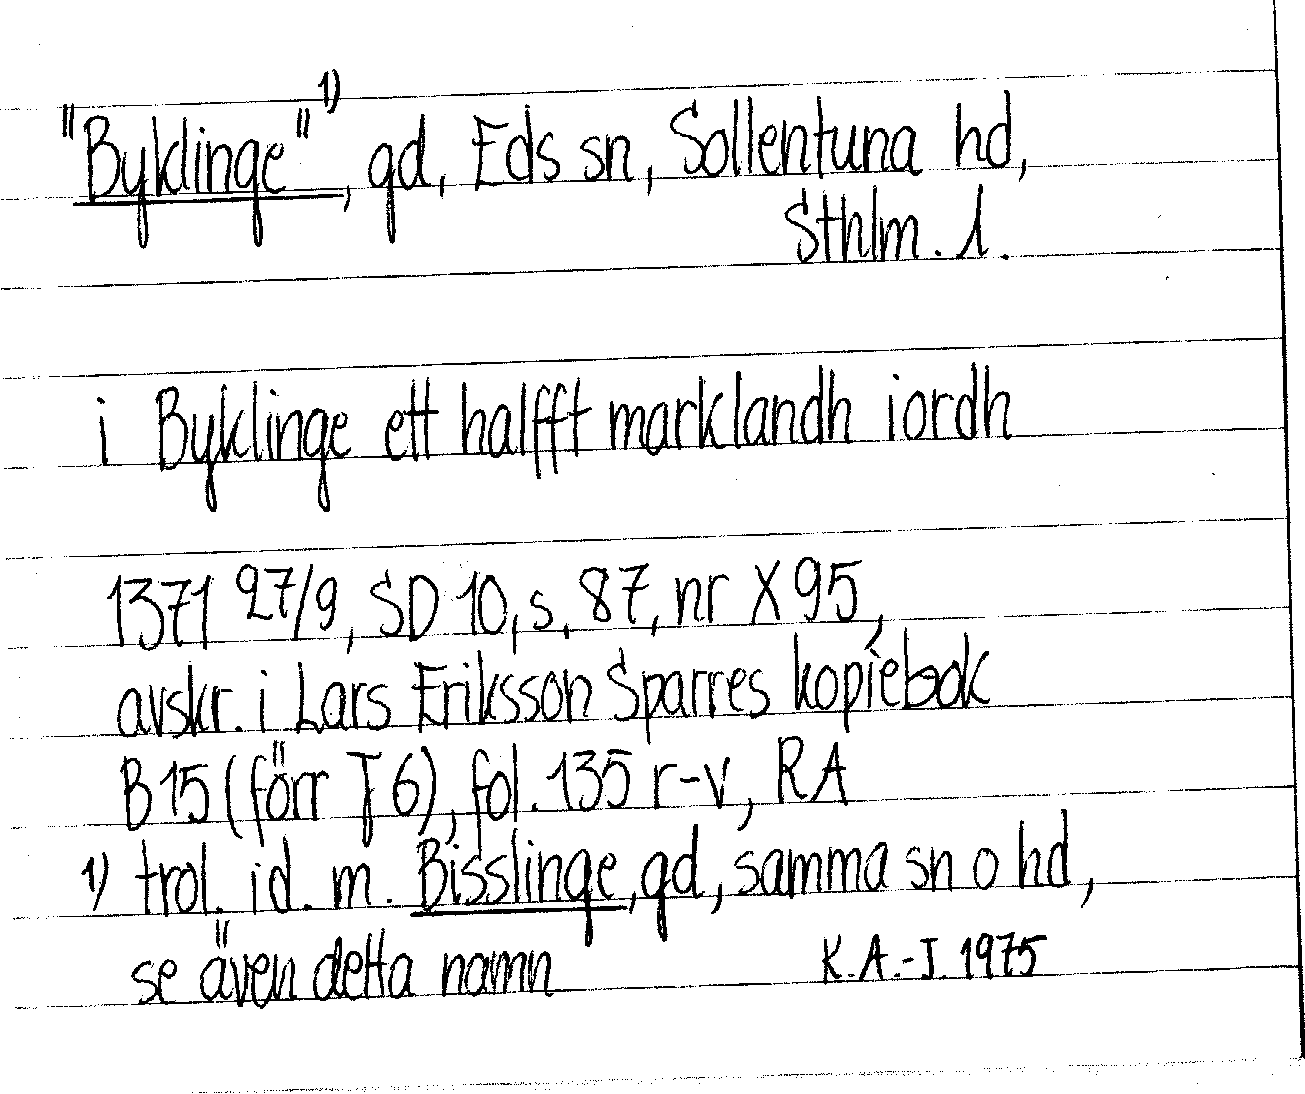 "Byklinge" 1), gd, Eds sn, Sollentuna hd,
Sthlm. l.
i Byklinge ett halfft marklandh iordh
1371 27/9, SD 10, s. 87, nr X 95,
avskr. i Lars Eriksson Sparres kopiebok
B 15 (förr J 6), fol. 135 r-v, RA
1) trol. id. m. Bisslinge, gd, samma sn o hd,
se även detta namn K. A.-J. 1975